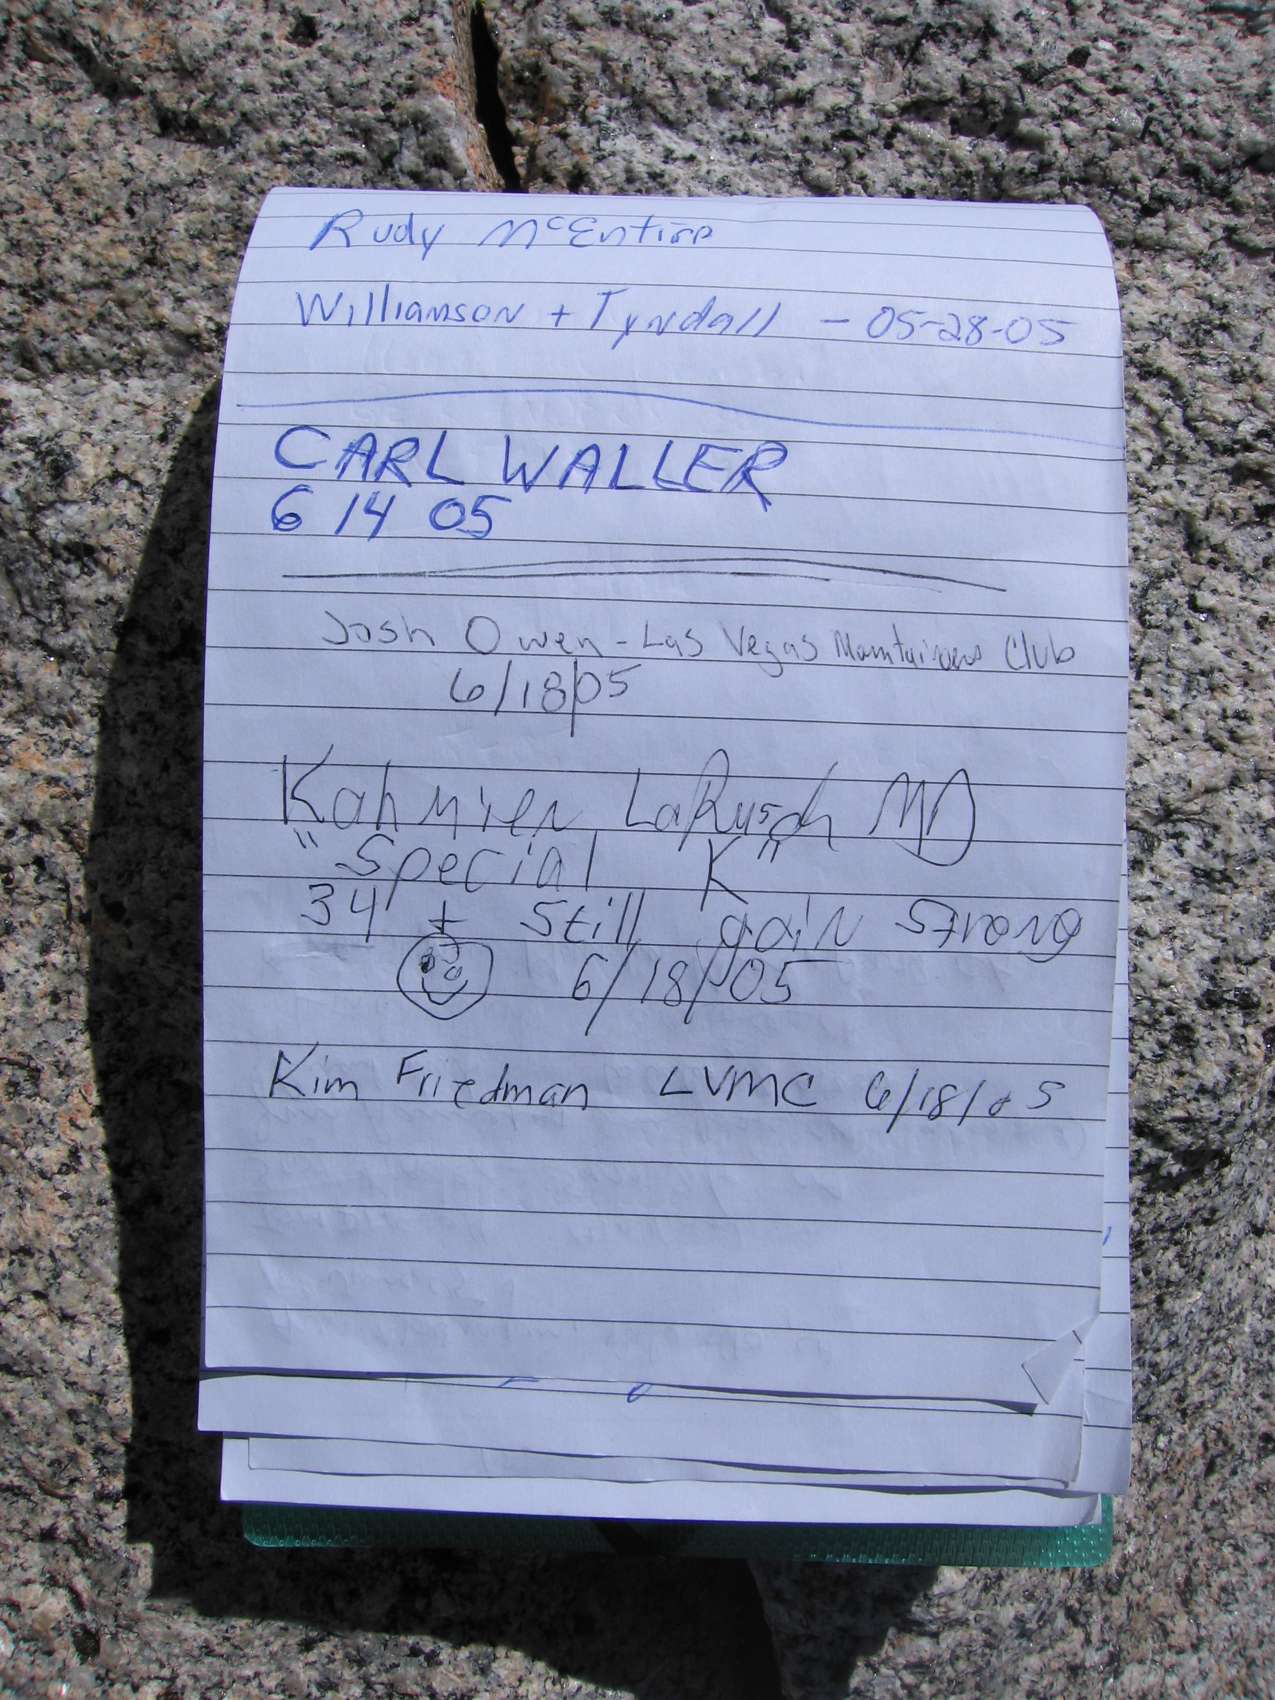 Rudy McEntire
Williamson + Tyndall - 05-28-05
CARL WALLER
6 14 05
Josh Owen - Las Vegas Mountaineers Club
6/18/05
Kahmien LaRusch MD
"Special K"
34 + Still goin Strong
6/18/05
Kim Friedman LVMC 6/18/05